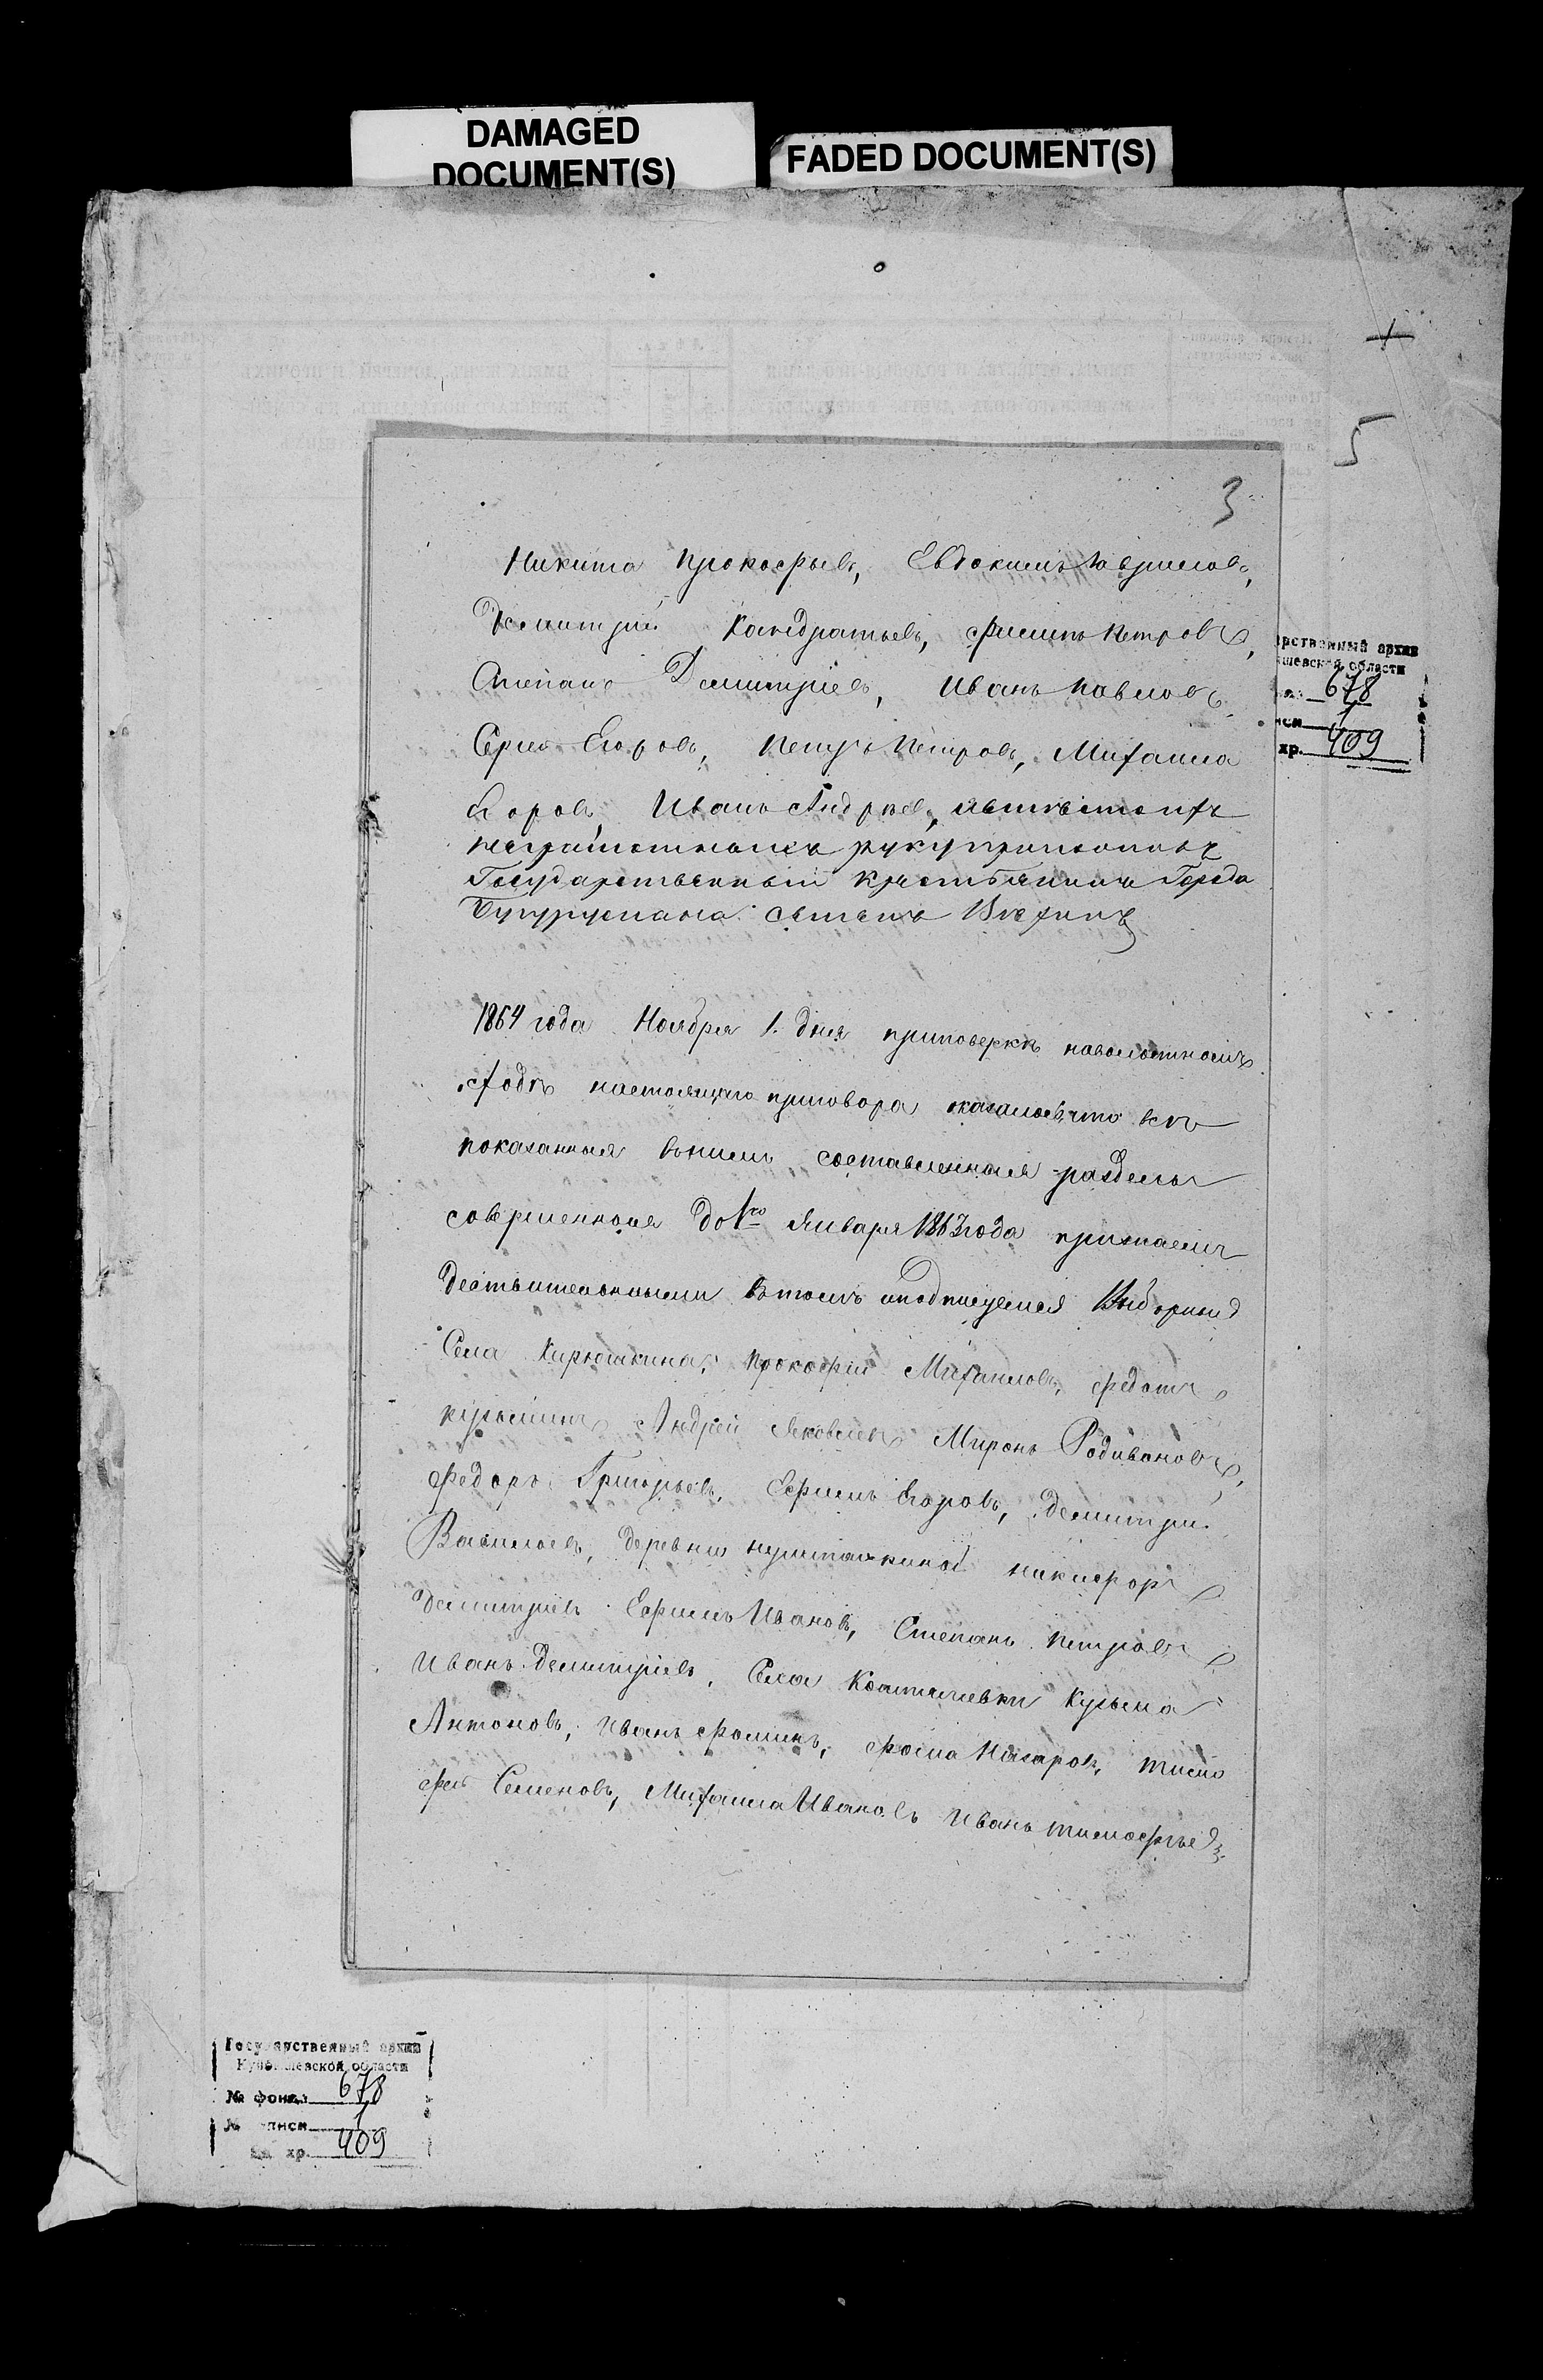 DAMAGED
DOCUMENT(S)
FADED DOCUMENT(S)
5
3
Никита Прокофьевъ, Евдокимъ Гаврилов,
Демитрий Кандратьевъ, Филипъ Петровъ,
Степанъ Демитриевъ, Иванъ Павловъ
Сергей Егоровъ, Петръ Петровъ, Михаила
Егоровъ, Иванъ Андреев,
неграмотныхъ руку приложилъ
Государственный крестьянинъ Города
Бугуруслана
1864 года Ноября 1. дня приповерке наволостномъ
сходе настоящаго приговора оказалось, что все
показанныя внемъ составленныя разделы
совершенныя до 1го Января 1863 года признаемъ
действительными втомъ иподписуемся Выборныя
Села Кирюшкина, Прокофий Михаиловъ, Федотъ
Андрей Яковлевъ Миронъ Родивановъ,
Федоръ Григорьевъ, Ефимъ Егоровъ, Демитрий
Васильевъ, деревни никифоръ
Демитриевъ Ефимъ Ивановъ, Степанъ Петровъ
Иванъ Демитриевъ, Села Кузьма
Антоновъ, Иванъ Фоминъ, Фома Назаровъ, тимо
фей Семеновъ, Михаила Ивановъ Иванъ тимофеев
рственный архив
шевской области
678
1
хр. 409
Государственный архив
Куйбышевской области
№ фонда 678
№ описи 1
хр. 409